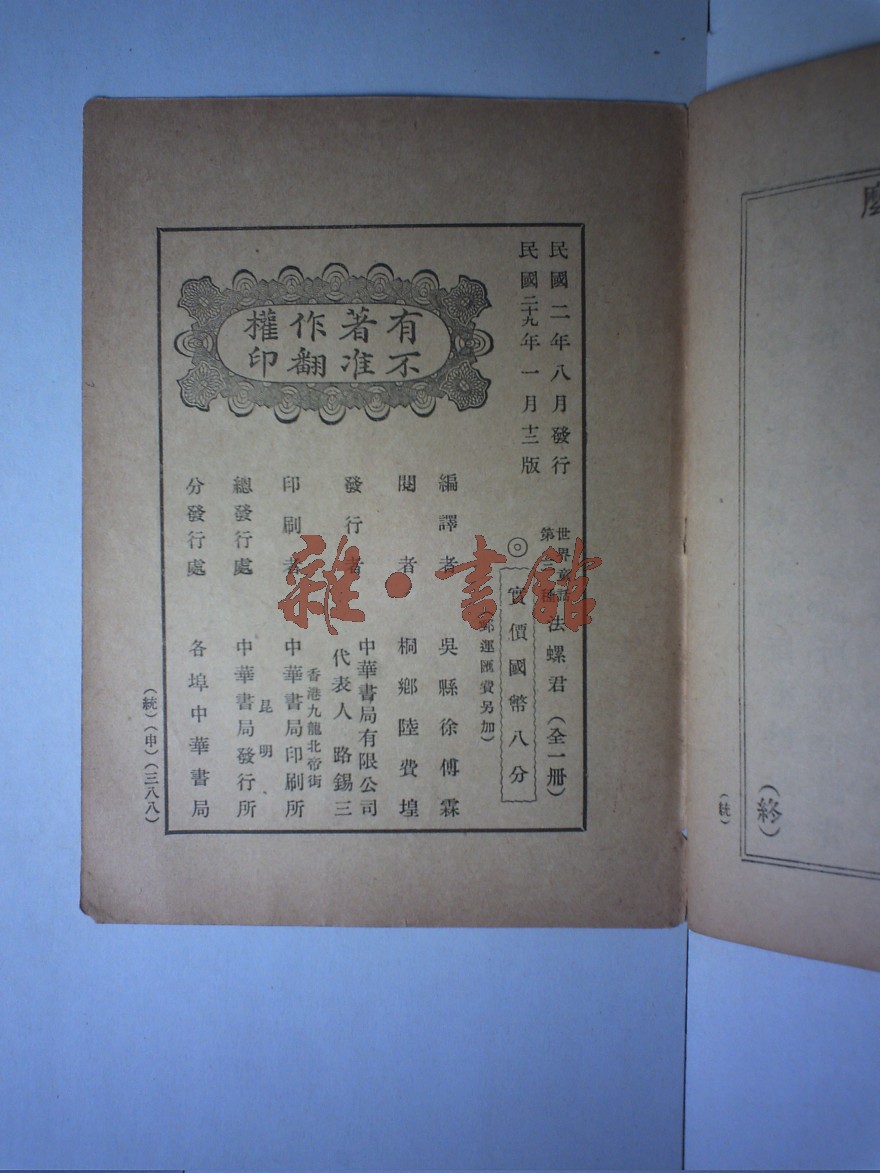 麼
（終）
（統）
民國二年八月發行
民國二十九年一月十三版
世界童話
第 種
法螺君（全一冊）
◎實價國幣八分
郵運匯費另加）
編譯者 吳縣徐傅霖
閱者 桐鄉陸費堭
發行者 中華書局有限公司
代表人 路錫三
印刷者 香港九龍北帝街
中華書局印刷所
總發行處 昆明
中華書局發行所
分發行處 各埠中華書局
有著作權
不准翻印
（統）（申）（三八八）
雜·書館